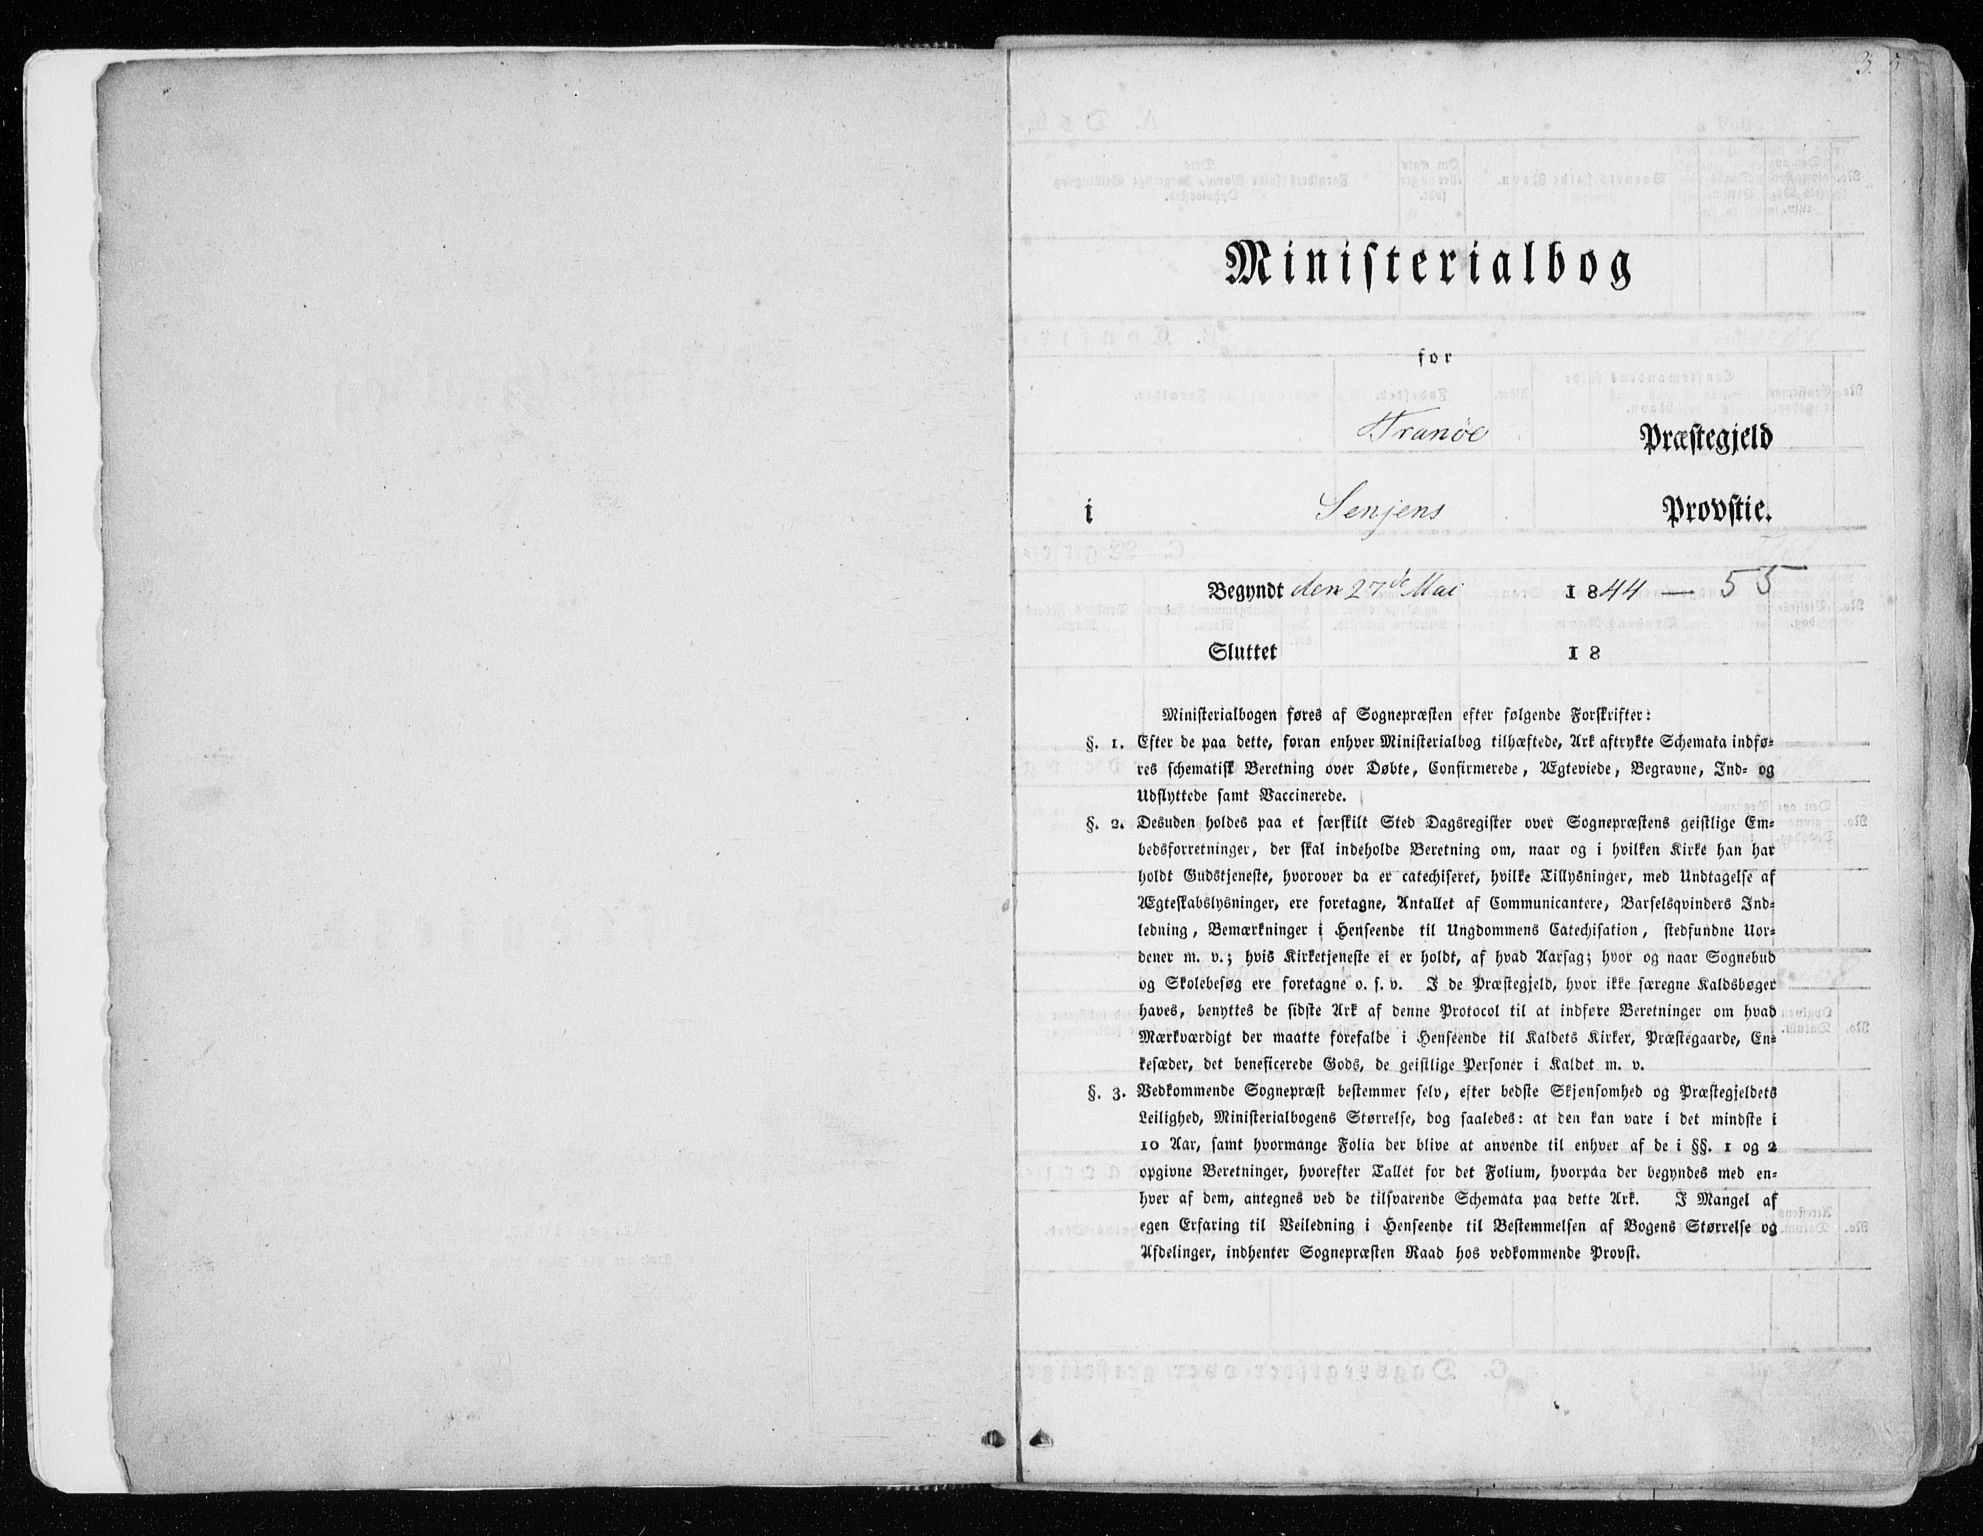 3. 5
Ministerialbog
for
Tranöe Præstegjeld
i Senjens Provstie.
Begyndt den 27de Mai 1844 — 55
Sluttet 18
Ministerialbogen føres af Sognepræsten efter følgende Forskrifter:
§. 1. Efter de paa dette, foran enhver Ministerialbog tilhæftede, Ark aftrykte Schemata indfø-
res schematisk Beretning over Døbte, Confirmerede, Ægteviede, Begravne, Ind- og
Udflyttede samt Vaccinerede.
§. 2. Desuden holdes paa et særskilt Sted Dagsregister over Sognepræstens geistlige Em-
bedsforretninger, der skal indeholde Beretning om, naar og i hvilken Kirke han har
holdt Gudstjeneste, hvorover da er catechiseret, hvilke Tillysninger, med Undtagelse af
Ægteskabslysninger, ere foretagne, Antallet af Communicantere, Barselqvinders Ind-
ledning, Bemærkninger i Henseende til Ungdommens Catechisation, stedfundne Uor-
dener m. v.; hvis Kirketjeneste ei er holdt, af hvad Aarsag; hvor og naar Sognebud
og Skolebesøg ere foretagne o. s. v. I de Præstegjeld, hvor ikke særegne Kaldsbøger
haves, benyttes de sidste Ark af denne Protocol til at indføre Beretninger om hvad
Mærkværdigt der maatte forefalde i Henseende til Kaldets Kirker, Præstegaarde, En-
kesæder, det beneficerede Gods, de geistlige Personer i Kaldet m. v.
§. 3. Vedkommende Sognepræst bestemmer selv, efter bedste Skjønsomhed og Præstegjeldets
Leilighed, Ministerialbogens Størrelse, dog saaledes: at den kan vare i det mindste i
10 Aar, samt hvormange Folia der blive at anvende til enhver af de i §§. 1 og 2
opgivne Beretninger, hvorefter Tallet for det Folium, hvorpaa der begyndes med en-
hver af dem, antegnes ved de tilsvarende Schemata paa dette Ark. I Mangel af
egen Erfaring til Veiledning i Henseende til Bestemmelsen af Bogens Størrelse og
Afdelinger, indhenter Sognepræsten Raad hos vedkommende Provst.